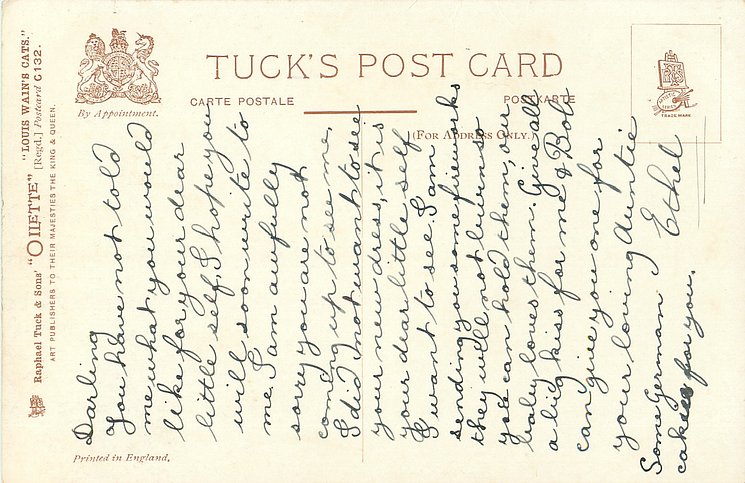 "LOUIS WAIN'S CATS."
Raphael Tuck & Sons' "OILETTE" [Regd.] Postcard C 132.
ART PUBLISHERS TO THEIR MAJESTIES THE KING & QUEEN.
By Appointment.
TUCK'S POST CARD
CARTE POSTALE
POSTKARTE
(FOR ADDRESS ONLY.)
TRADE MARK
Darling
You have not told
me what you would
like for your dear
little self. I hope you
will soon write to
me. I am awfully
sorry you are not
coming up to see me.
I did not want to see
your new dress, it is
your dear little self
I want to see. I am
sending you some fireworks
they will not burn so
you can hold them, our
baby loves them. Give all
a big kiss for me & Bob
can give you one for
your loving Auntie
Ethel
Some German
cakes for you.
Printed in England.